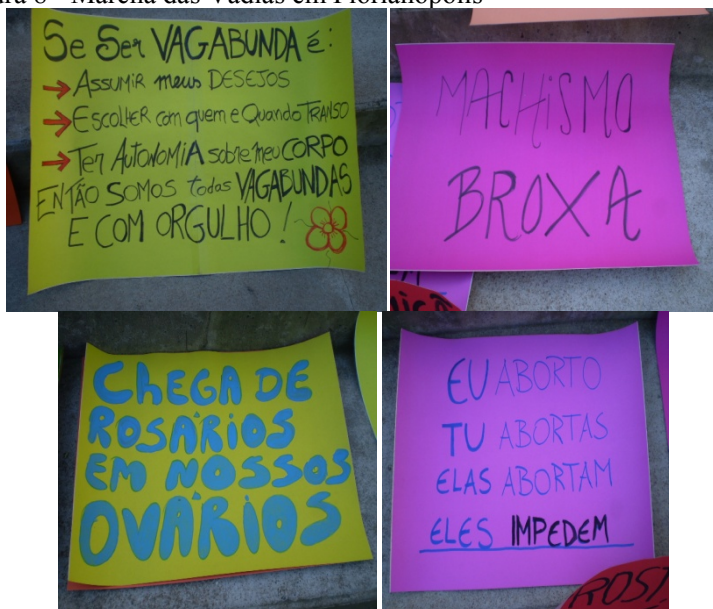 Marcha das Vadias em Florianópolis
Se Ser VAGABUNDA é:
→ ASSUMIR meus DESEJOS
→ ESCOLHER com quem e Quando TRANSO
→ Ter AUTONOMIA sobre meu CORPO
ENTÃO SOMOS todas VAGABUNDAS
E COM ORGULHO!
MACHISMO
BROXA
CHEGA DE
ROSÁRIOS
EM NOSSOS
OVÁRIOS
EU ABORTO
TU ABORTAS
ELAS ABORTAM
ELES IMPEDEM